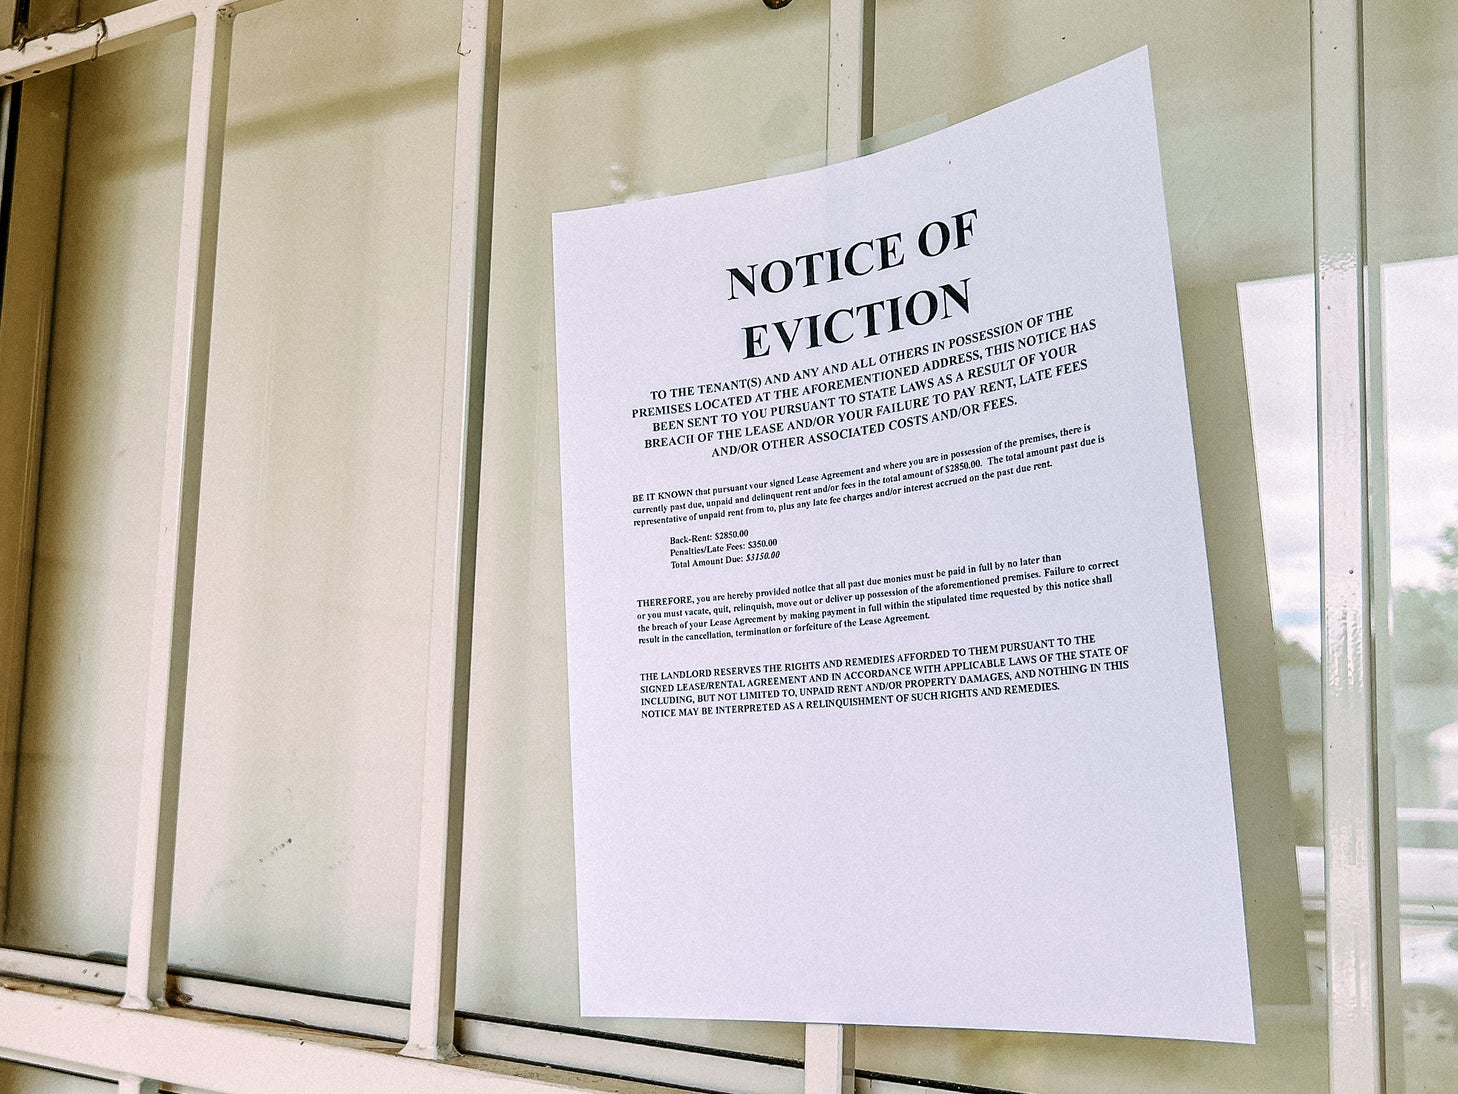 NOTICE OF
EVICTION
TO THE TENANT(S) AND ANY AND ALL OTHERS IN POSSESSION OF THE
PREMISES LOCATED AT THE AFOREMENTIONED ADDRESS, THIS NOTICE HAS
BEEN SENT TO YOU PURSUANT TO STATE LAWS AS A RESULT OF YOUR
BREACH OF THE LEASE AND/OR YOUR FAILURE TO PAY RENT, LATE FEES
AND/OR OTHER ASSOCIATED COSTS AND/OR FEES.
BE IT KNOWN that pursuant your signed Lease Agreement and where you are in possession of the premises, there is
currently past due, unpaid and delinquent rent and/or fees in the total amount of $2850.00. The total amount past due is
representative of unpaid rent from to, plus any late fee charges and/or interest accrued on the past due rent.
Back-Rent: $2850.00
Penalties/Late Fees: $350.00
Total Amount Due: $3150.00
THEREFORE, you are hereby provided notice that all past due monies must be paid in full by no later than
or you must vacate, quit, relinquish, move out or deliver up possession of the aforementioned premises. Failure to correct
the breach of your Lease Agreement by making payment in full within the stipulated time requested by this notice shall
result in the cancellation, termination or forfeiture of the Lease Agreement.
THE LANDLORD RESERVES THE RIGHTS AND REMEDIES AFFORDED TO THEM PURSUANT TO THE
SIGNED LEASE/RENTAL AGREEMENT AND IN ACCORDANCE WITH APPLICABLE LAWS OF THE STATE OF
INCLUDING, BUT NOT LIMITED TO, UNPAID RENT AND/OR PROPERTY DAMAGES, AND NOTHING IN THIS
NOTICE MAY BE INTERPRETED AS A RELINQUISHMENT OF SUCH RIGHTS AND REMEDIES.